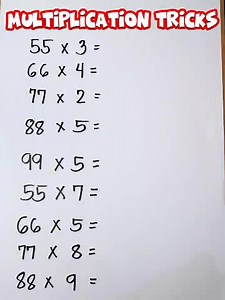 MULTIPLICATION TRICKS
55 x 3 =
66 x 4 =
77 x 2 =
88 x 5 =
99 x 5 =
55 x 7 =
66 x 5 =
77 x 8 =
88 x 9 =